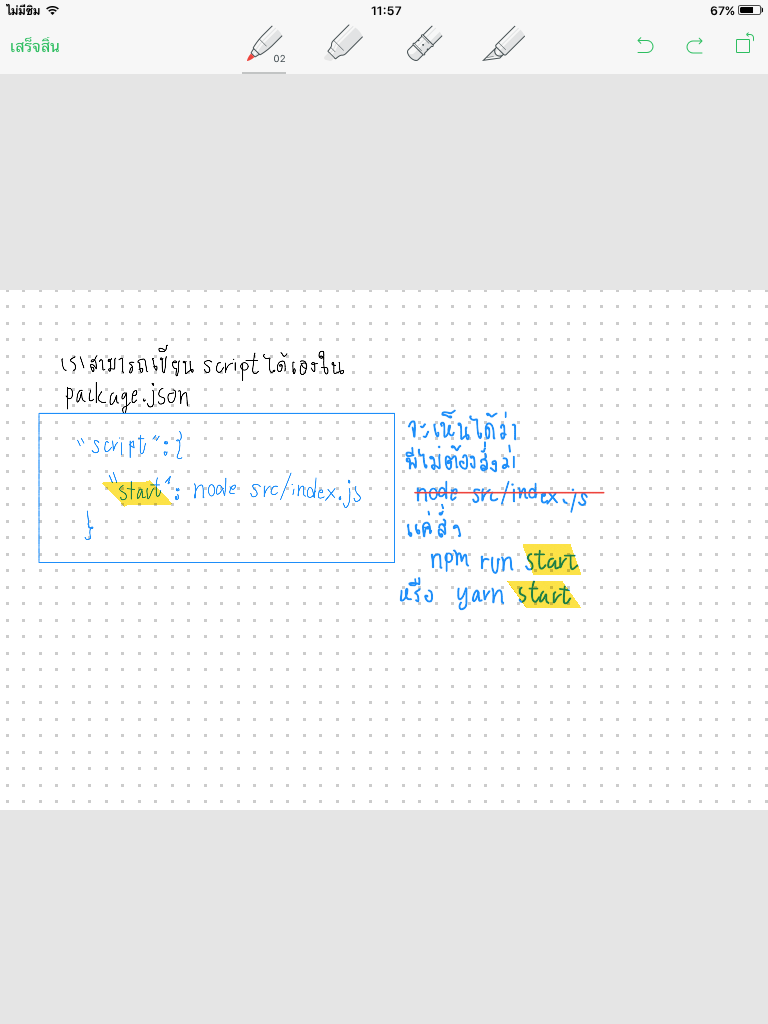 ไม่มีซิม
11:57
67%
เสร็จสิ้น
02
เราสามารถเขียน script ได้เองใน
package.json
"script":{
"start": node src/index.js
}
จะเห็นได้ว่า
พี่ไม่ต้องสั่งว่า
node src/index.js
แค่สั่ง
npm run start
หรือ yarn start